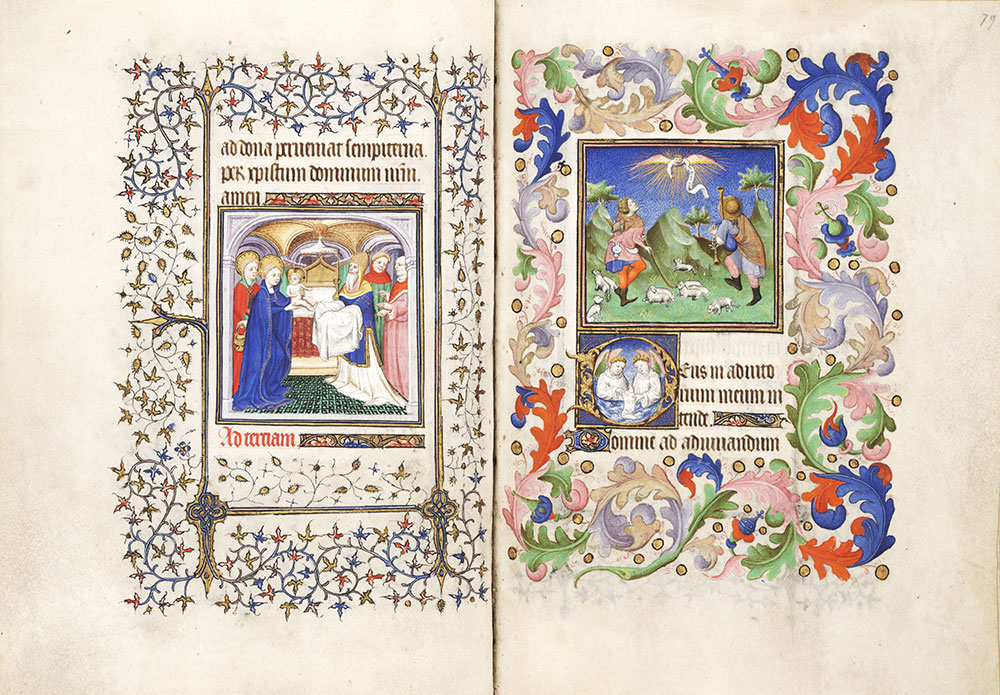 ad dona perueniat sempiterna.
per xpistum dominum nr̄m
amen
Ad tertiam
79
Deus in adiuto
rium meum in
tende.
Domine ad adiuuandum